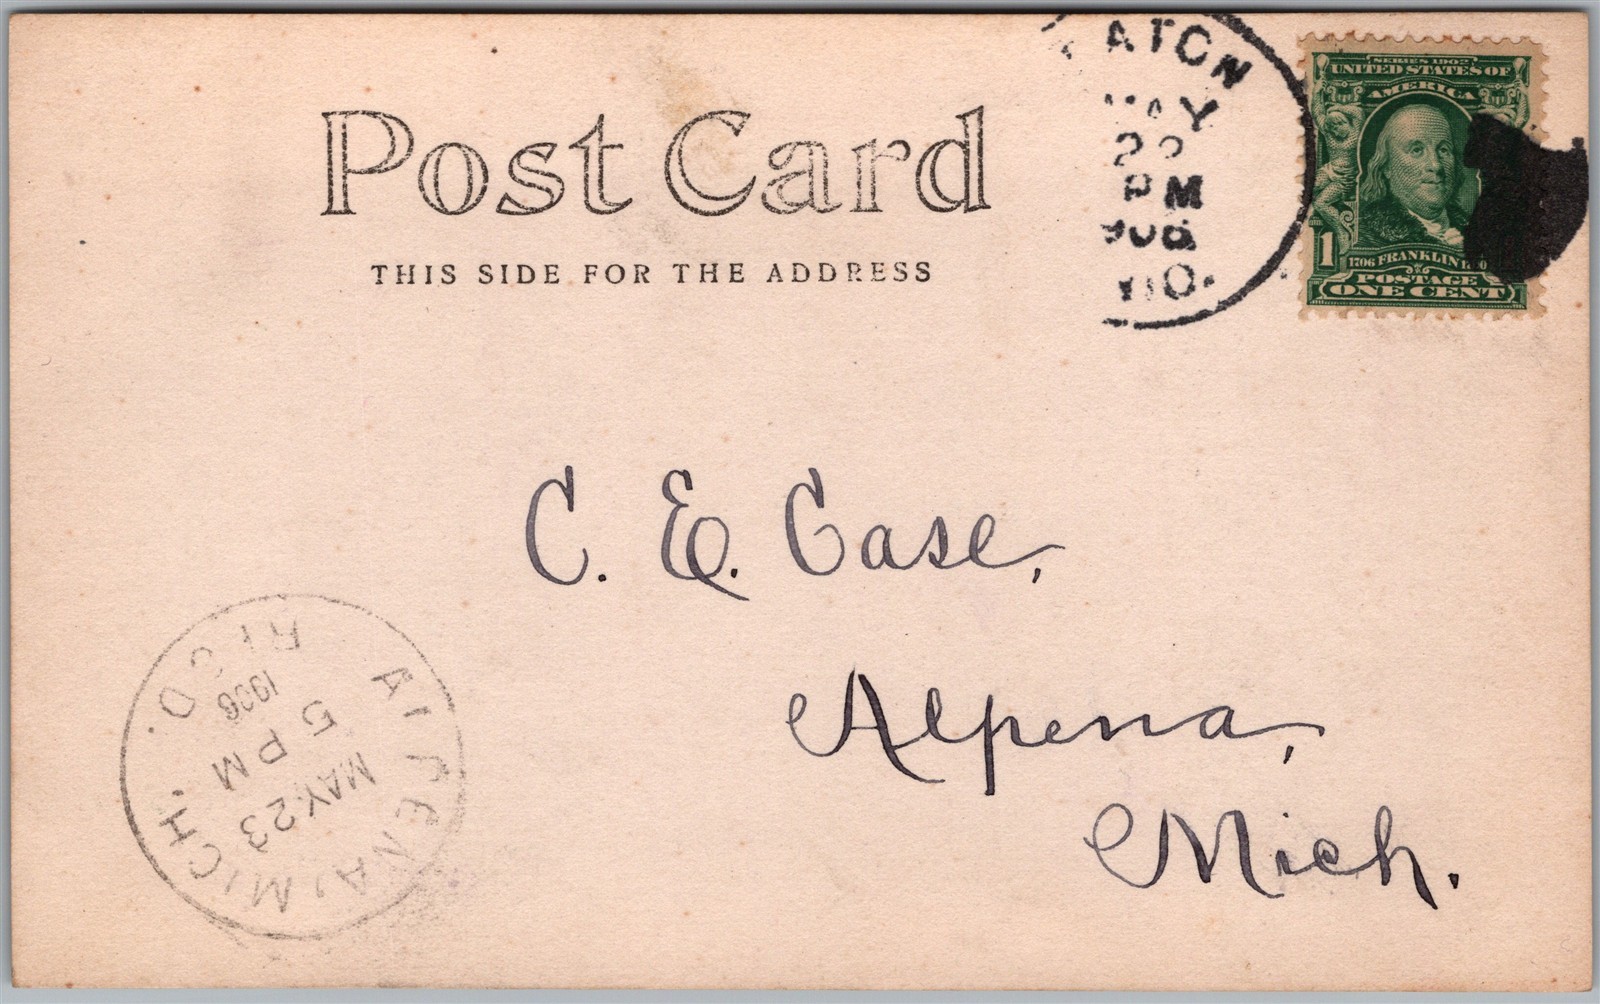 Post Card
THIS SIDE FOR THE ADDRESS
MAY
22
PM
SERIES 1902
UNITED STATES OF
AMERICA
1
1706 FRANKLIN
POSTAGE
ONE CENT
C. E. Case,
Alpena,
Mich.
ALPENA, MICH.
MAY 23
5 PM
1906
REC'D.